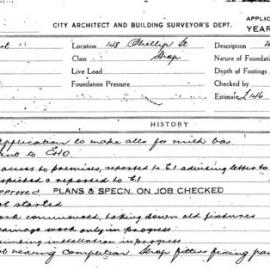 CITY ARCHITECT AND BUILDING SURVEYOR'S DEPT.
APPLIC
YEAR
Location 148 Phillip St
Description
Class Shop
Nature of Foundation
Live Load
Depth of Footings
Foundation Pressure
Checked by
Estimate £146
HISTORY
Application to make alts for milk bar
to CHO
access to premises, reported to C1 advising letter to
inspected & reported to C1
Approved PLANS & SPECN. ON JOB CHECKED
not started
work commenced, taking down old fixtures
drainage work only in progress
plumbing installation in progress
Job nearing completion Shop fitters fixing